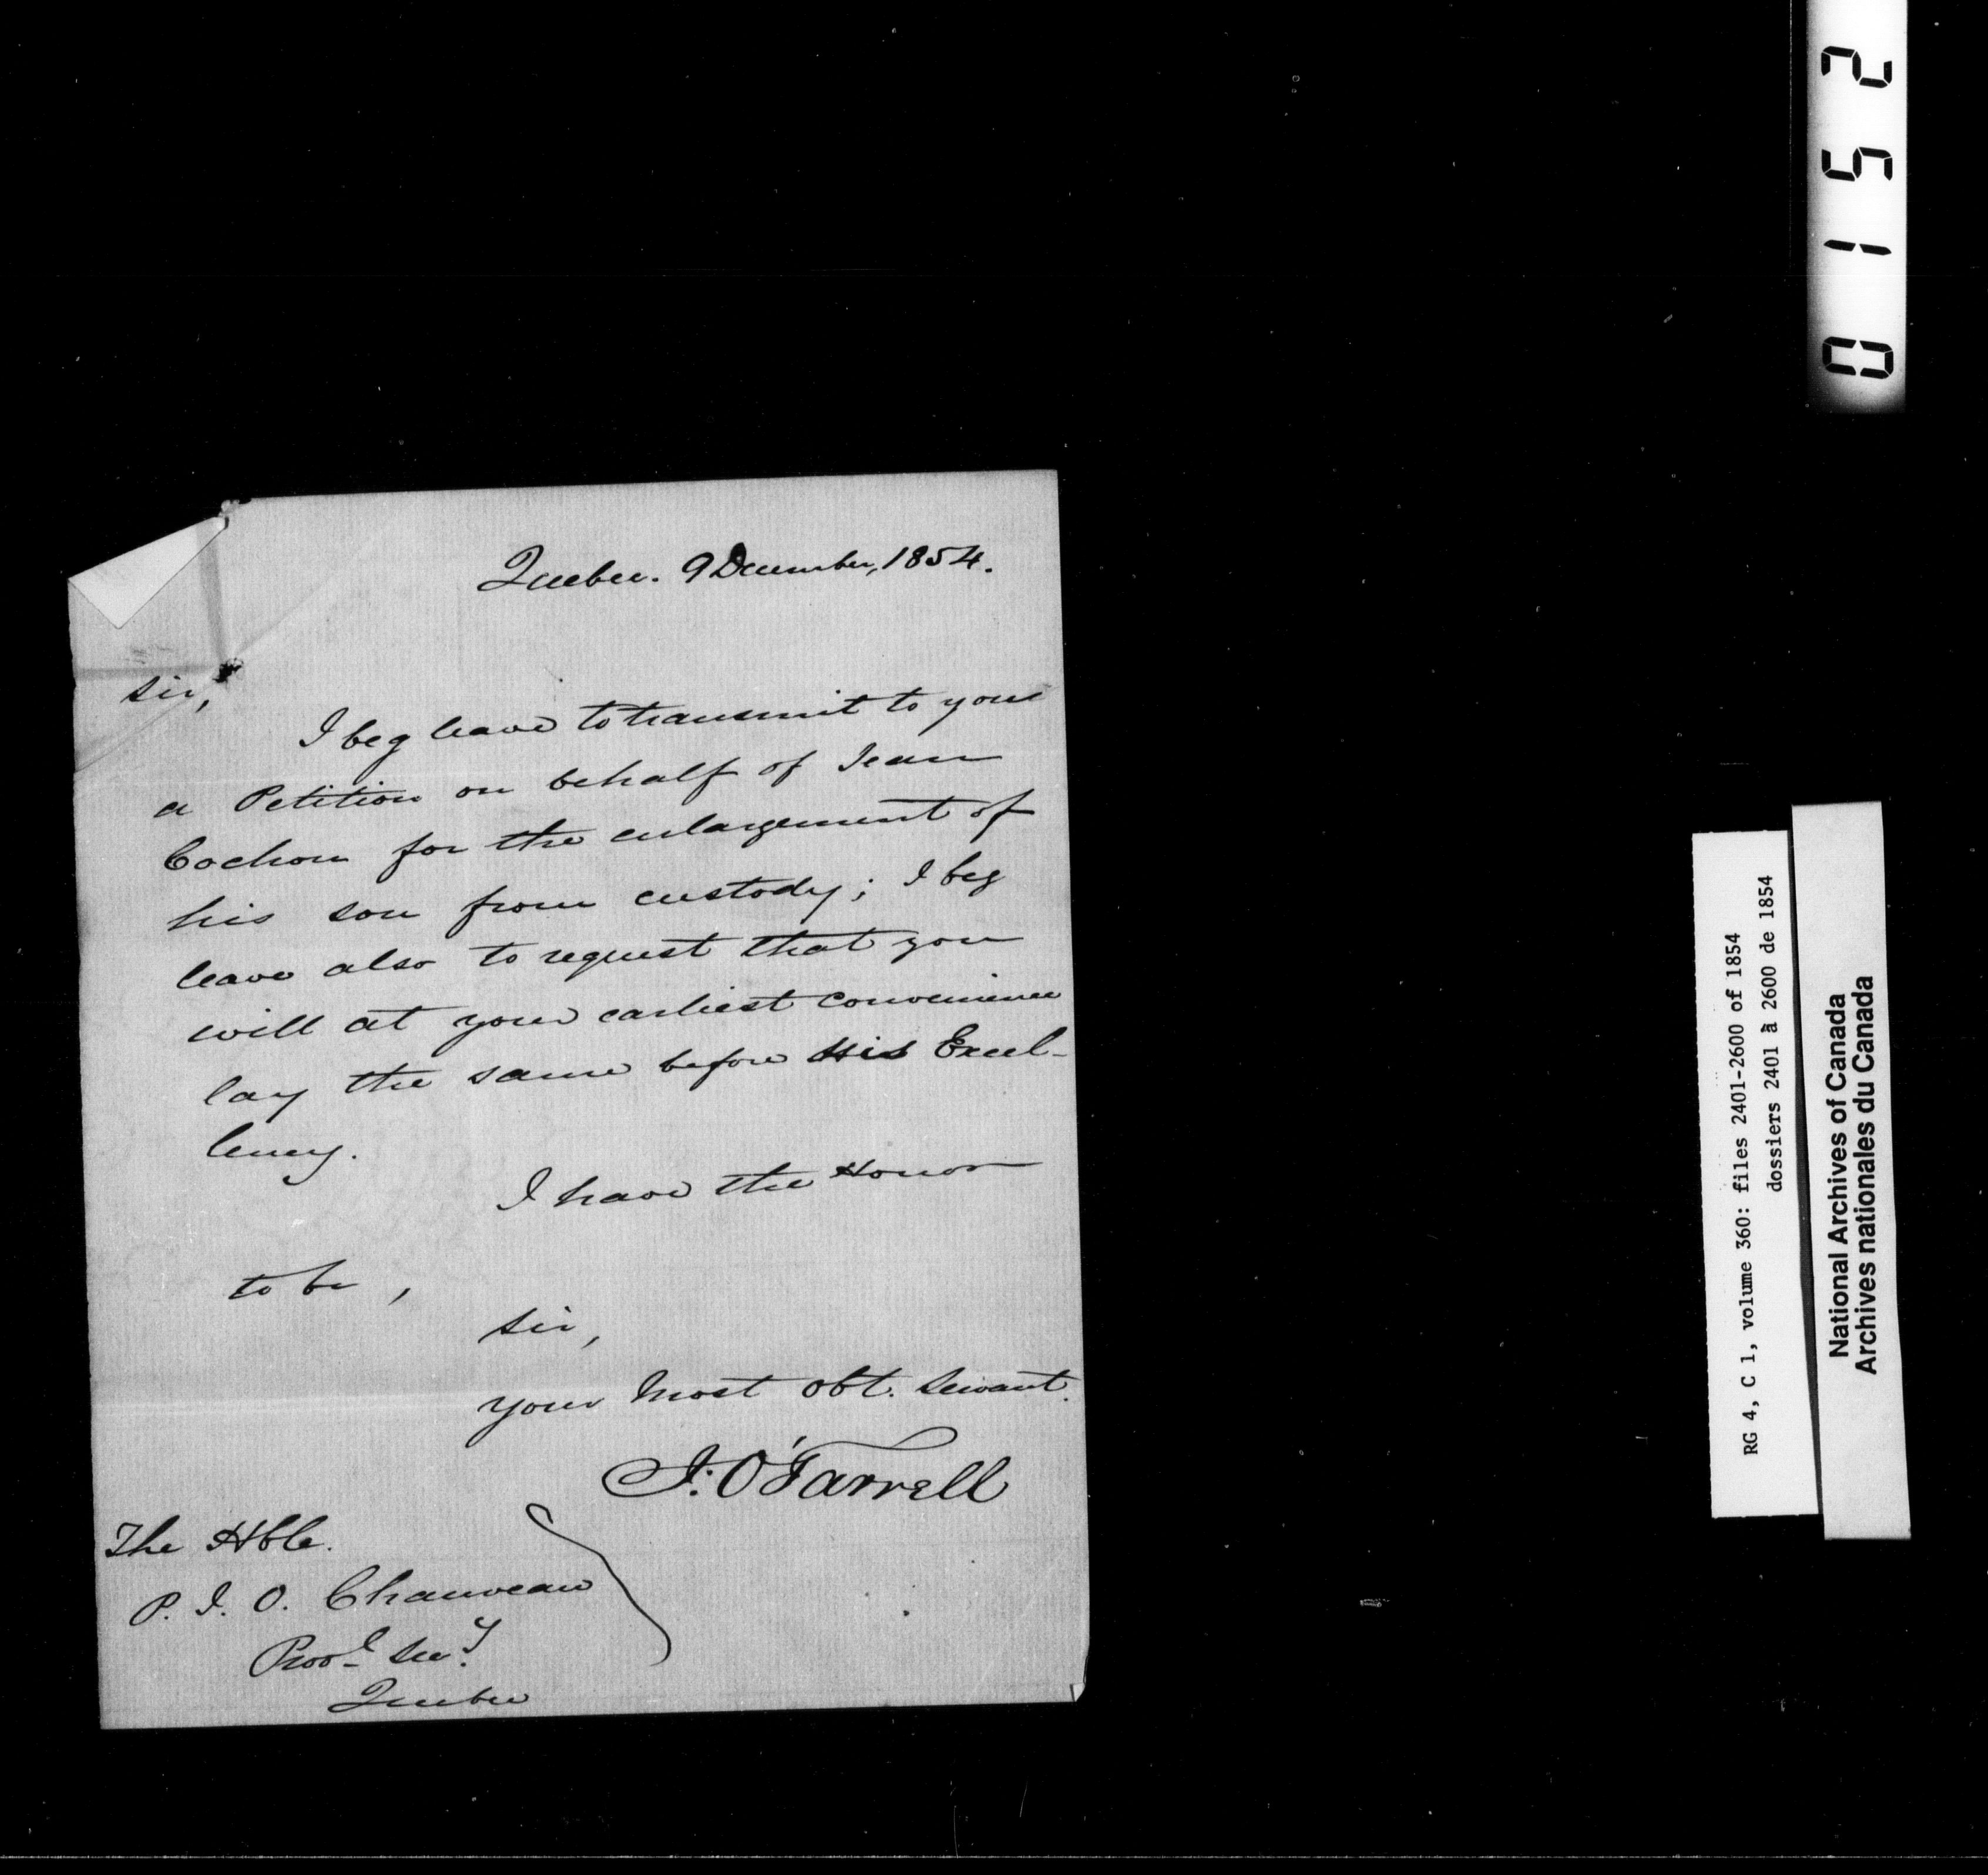 Quebec. 9 December, 1854.
Sir,
I beg leave to transmit to you
a Petition on behalf of Jean
Cochon for the enlargement of
his son from custody; I beg
leave also to request that you
will at your earliest convenience
lay the same before His Excel-
lency.
I have the Honor
to be,
Sir,
your most obt. servant.
J. O'Farrell
The Hble.
P. J. O. Chauveau
Provl Secy.
Quebec
0152
RG 4, C 1, volume 360: files 2401-2600 of 1854
dossiers 2401 à 2600 de 1854
National Archives of Canada
Archives nationales du Canada